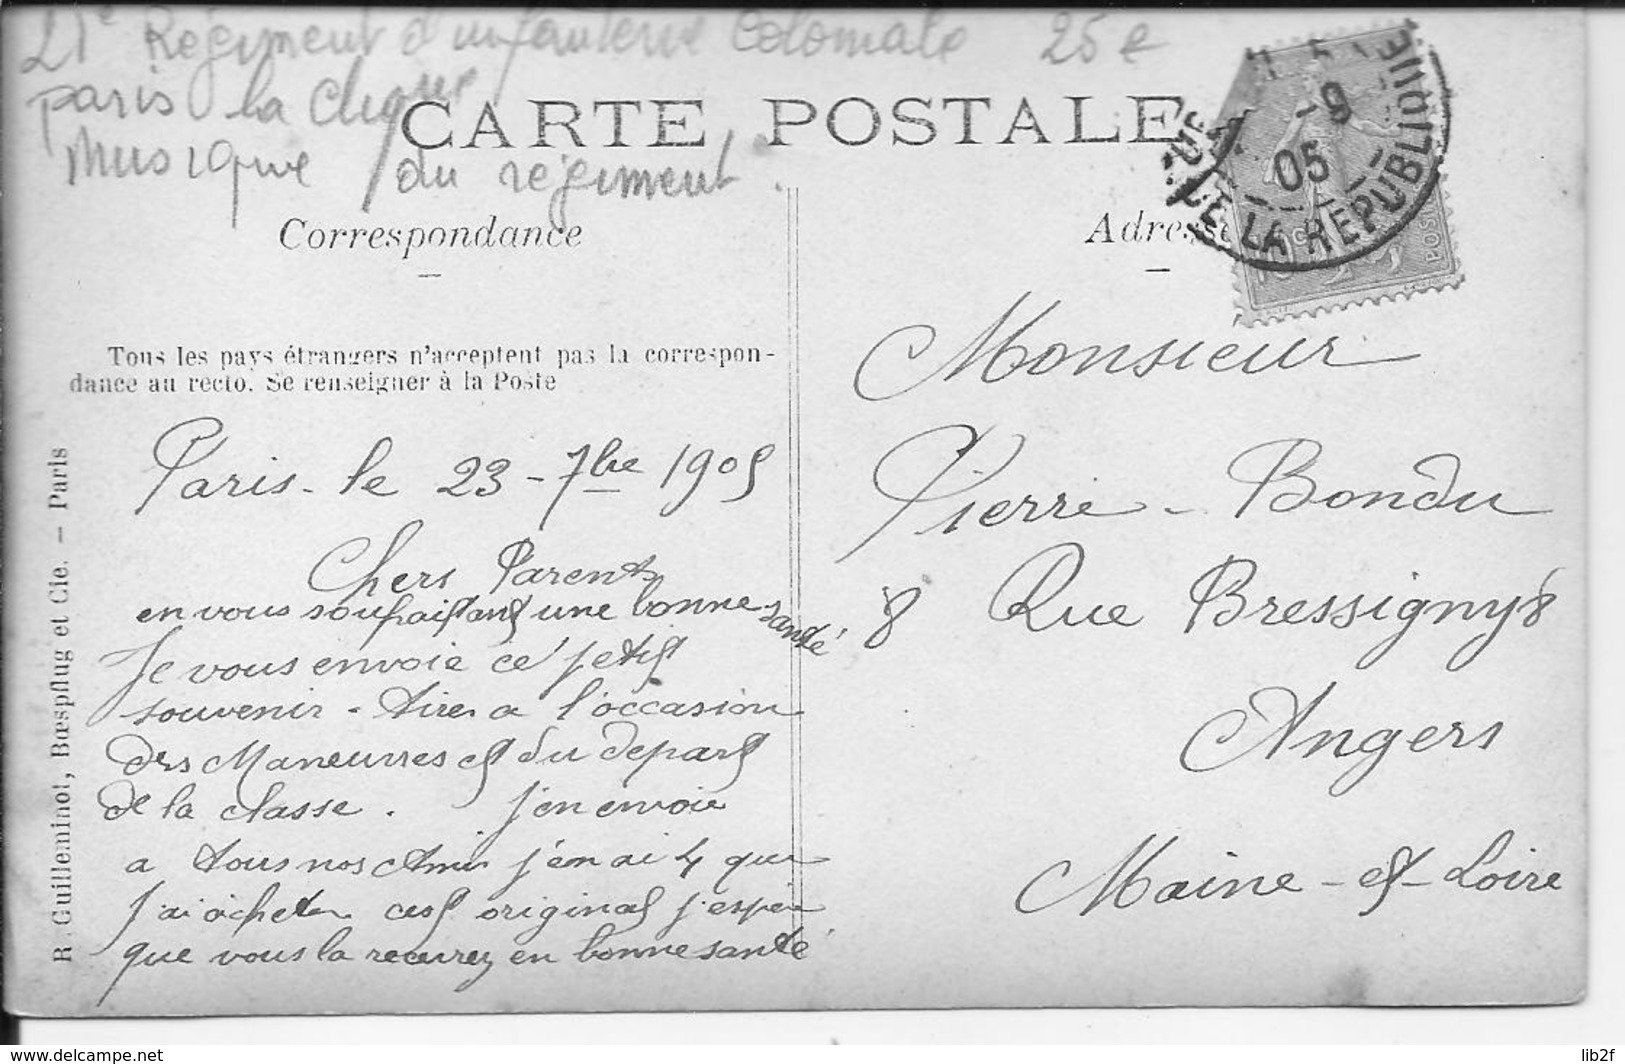 21e Régiment d'infanterie Colomale 25 e
paris la
musique du régiment.
CARTE POSTALE
-9
05
DE LA REPUBLIQUE
POSTES
Correspondance
Adresse
Tous les pays étrangers n'acceptent pas la correspon-
dance au recto. Se renseigner à la Poste
Paris - le 23 - 7bre 1905
Chers Parents
en vous souhaitant une bonne santé
Je vous envoie ce petit
souvenir - tirer a l'occasion
des Maneuvres et du depart
de la classe. j'en envoie
a tous nos Amis j'en ai 4 que
j'ai acheter cest original j'espère
que vous la recevrez en bonne santé
Monsieur
Pierre - Bondu
8 Rue Bressigny 8
Angers
Maine - et - Loire
R. Guilleminot, Bœspflug et Cie. — Paris
www.delcampe.net
lib2f